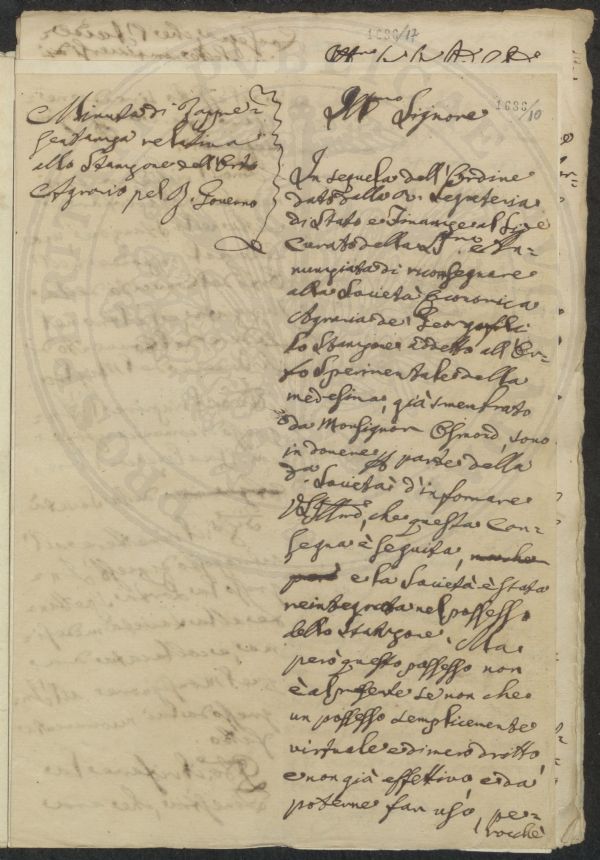 1686/17
Minuta di Rappre-
sentanza relativa
allo Stanzone dell'Orto
Agrario pel R. Governo
Ill.mo Signore
1686/10
In sequela dell'Ordine
dato dalla R. Segreteria
di Stato e Finanze al Sig.e
Curato della SS.ma An-
nunziata di riconsegnare
alla Società Economica
Agraria de' Georgofili
lo Stanzone addetto all'Or-
to Sperimentale della
medesima, già smembrato
da Monsignor Osmond, sono
in dovere p. parte della
da. Società d'informare
VS. Ill.ma, che questa Con-
segna è seguita,
e la Società è stata
reintegrata nel possesso
dello Stanzone. Ma
però questo possesso non
è al presente se non che
un possesso semplicemente
virtuale e di mero dritto,
e non già effettivo, e da
poterne far uso, pe-
rocchè